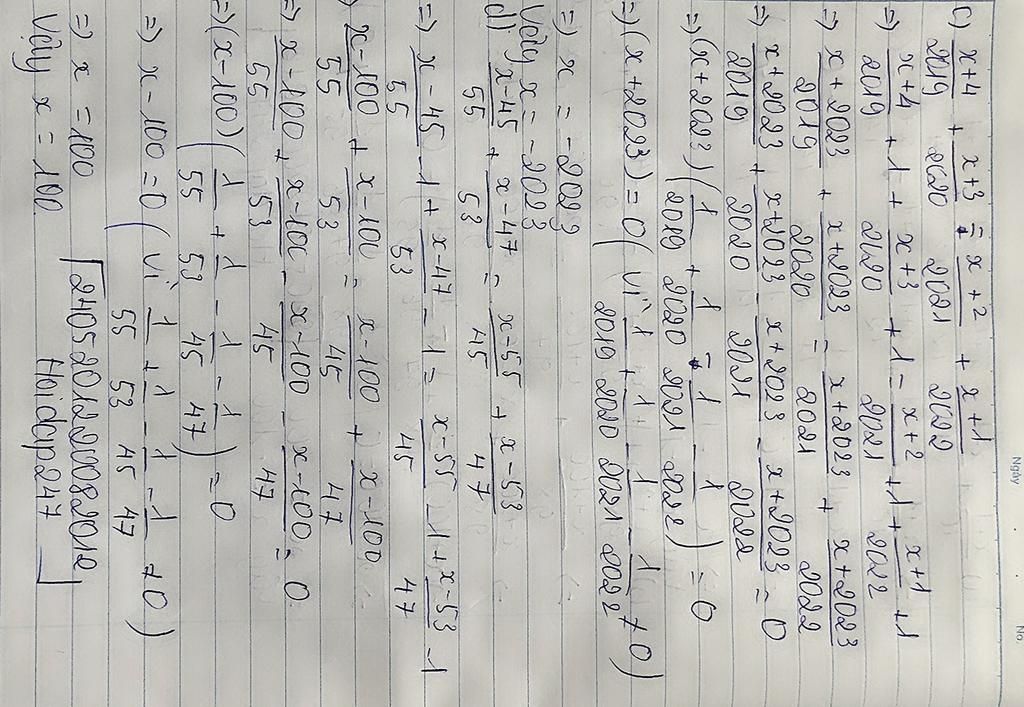 Ngày
No.
c) x+4/2019 + x+3/2020 = x+2/2021 + x+1/2022
=> x+4/2019 + 1 + x+3/2020 + 1 = x+2/2021 + 1 + x+1/2022 + 1
=> x+2023/2019 + x+2023/2020 = x+2023/2021 + x+2023/2022
=> x+2023/2019 + x+2023/2020 - x+2023/2021 - x+2023/2022 = 0
=> (x+2023)(1/2019 + 1/2020 - 1/2021 - 1/2022) = 0
=> (x+2023) = 0 (vì 1/2019 + 1/2020 - 1/2021 - 1/2022 ≠ 0)
=> x = -2023
Vậy x = -2023
d) x-45/55 + x-47/53 = x-55/45 + x-53/47
=> x-45/55 - 1 + x-47/53 - 1 = x-55/45 - 1 + x-53/47 - 1
x-100/55 + x-100/53 = x-100/45 + x-100/47
=> x-100/55 + x-100/53 - x-100/45 - x-100/47 = 0
=> (x-100)(1/55 + 1/53 - 1/45 - 1/47) = 0
=> x-100 = 0 (vì 1/55 + 1/53 - 1/45 - 1/47 ≠ 0)
=> x = 100
Vậy x = 100.
2405201220082012
Hoidap247